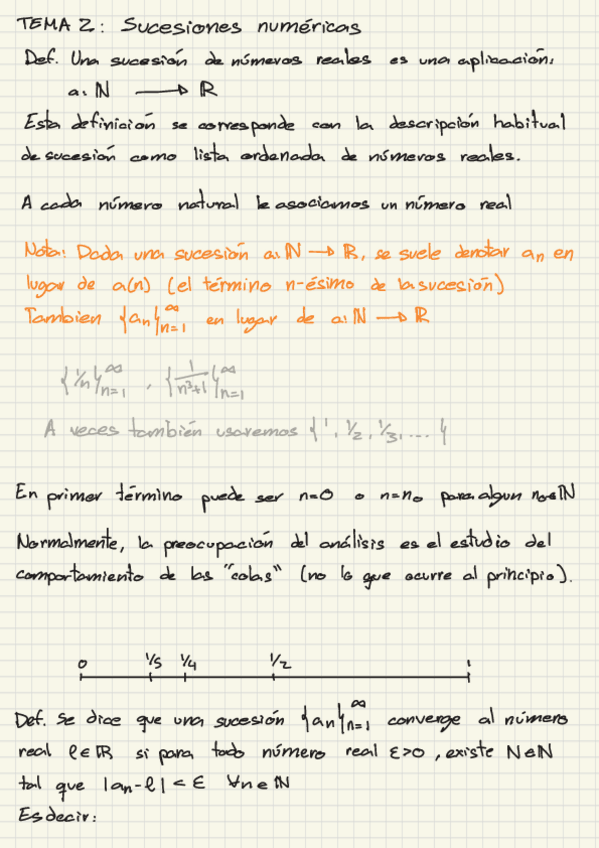 TEMA 2: Sucesiones numéricas
Def. Una sucesión de números reales es una aplicación:
a: ℕ ⟶ ℝ
Esta definición se corresponde con la descripción habitual
de sucesión como lista ordenada de números reales.
A cada número natural le asociamos un número real
Nota: Dada una sucesión a: ℕ → ℝ, se suele denotar aₙ en
lugar de a(n) (el término n-ésimo de la sucesión)
Tambien {aₙ}ₙ₌₁^∞ en lugar de a: ℕ → ℝ
{1/n}ₙ₌₁^∞ , {1/(n³+1)}ₙ₌₁^∞
A veces también usaremos {1, 1/2, 1/3, ...}
En primer término puede ser n=0 o n=n₀ para algun n₀∈ℕ
Normalmente, la preocupación del análisis es el estudio del
comportamiento de las "colas" (no lo que ocurre al principio).
0 1/5 1/4 1/2 1
Def. Se dice que una sucesión {aₙ}ₙ₌₁^∞ converge al número
real ℓ∈ℝ si para todo número real ε>0, existe N∈ℕ
tal que |aₙ-ℓ| < ε ∀n∈ℕ
Es decir: